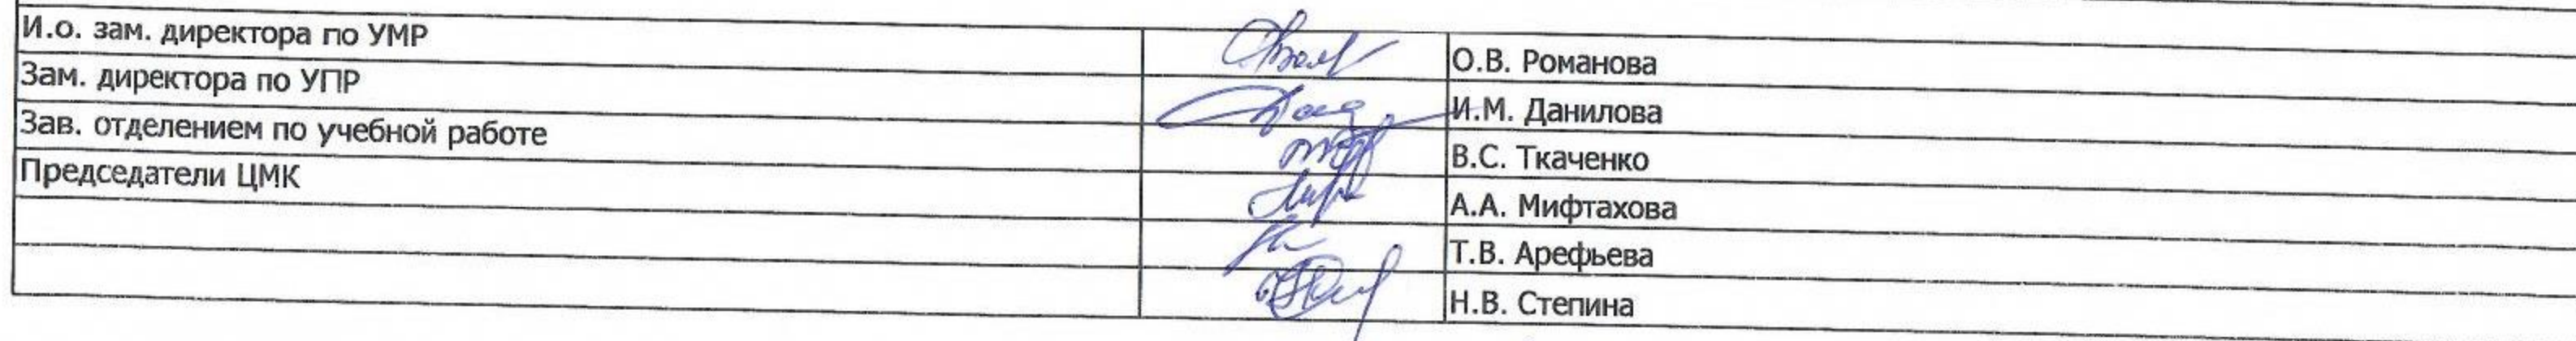 И.о. зам. директора по УМР О.В. Романова
Зам. директора по УПР И.М. Данилова
Зав. отделением по учебной работе В.С. Ткаченко
Председатели ЦМК А.А. Мифтахова
Т.В. Арефьева
Н.В. Степина